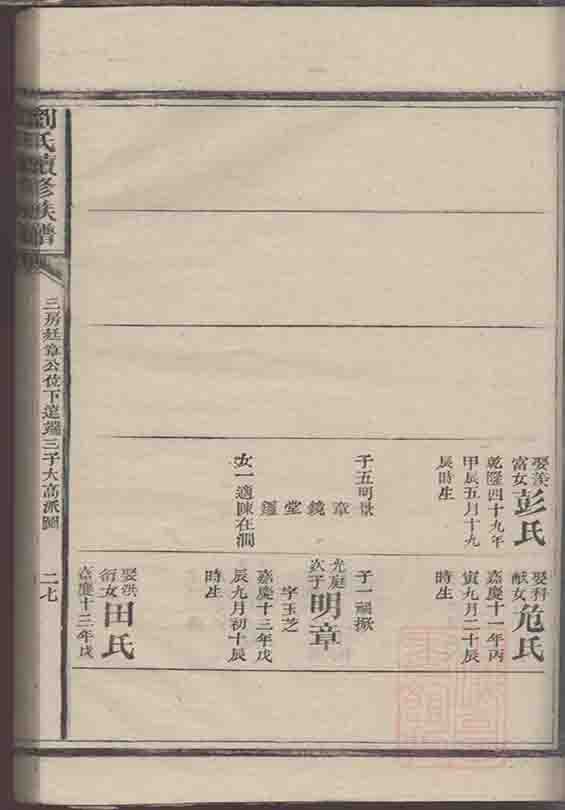 娶羨
富女
彭氏
乾隆四十九年
甲辰五月十九
辰時生
子五明景
章
鏡
堂
鑑
女一適陳在澗
娶科
獻女
危氏
嘉慶十一年丙
寅九月二十辰
時生
子一禎掀
光庭
次子
明章
字玉芝
嘉慶十三年戊
辰九月初十辰
時生
娶洪
衍女
田氏
嘉慶十三年戊
劉氏續修族譜
三房廷章公位下道端三子大高派圖
二七